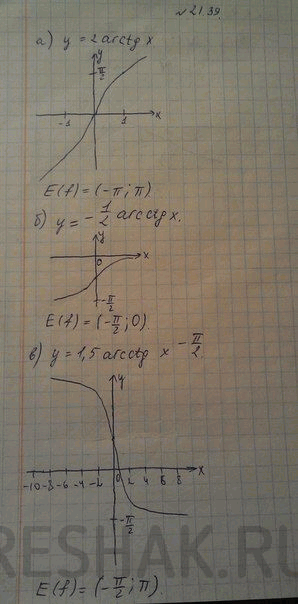 №21.39.
а) y = 2 arctg x
y
π/2
-1 1 x
E(f) = (-π; π)
б) y = - 1/2 arcctg x.
y
0 x
-π/2
E(f) = (-π/2; 0).
в) y = 1,5 arcctg x - π/2.
y
-10 -8 -6 -4 -2 0 2 4 6 8 x
-π/2
E(f) = (-π/2; π).
RESHAK.RU